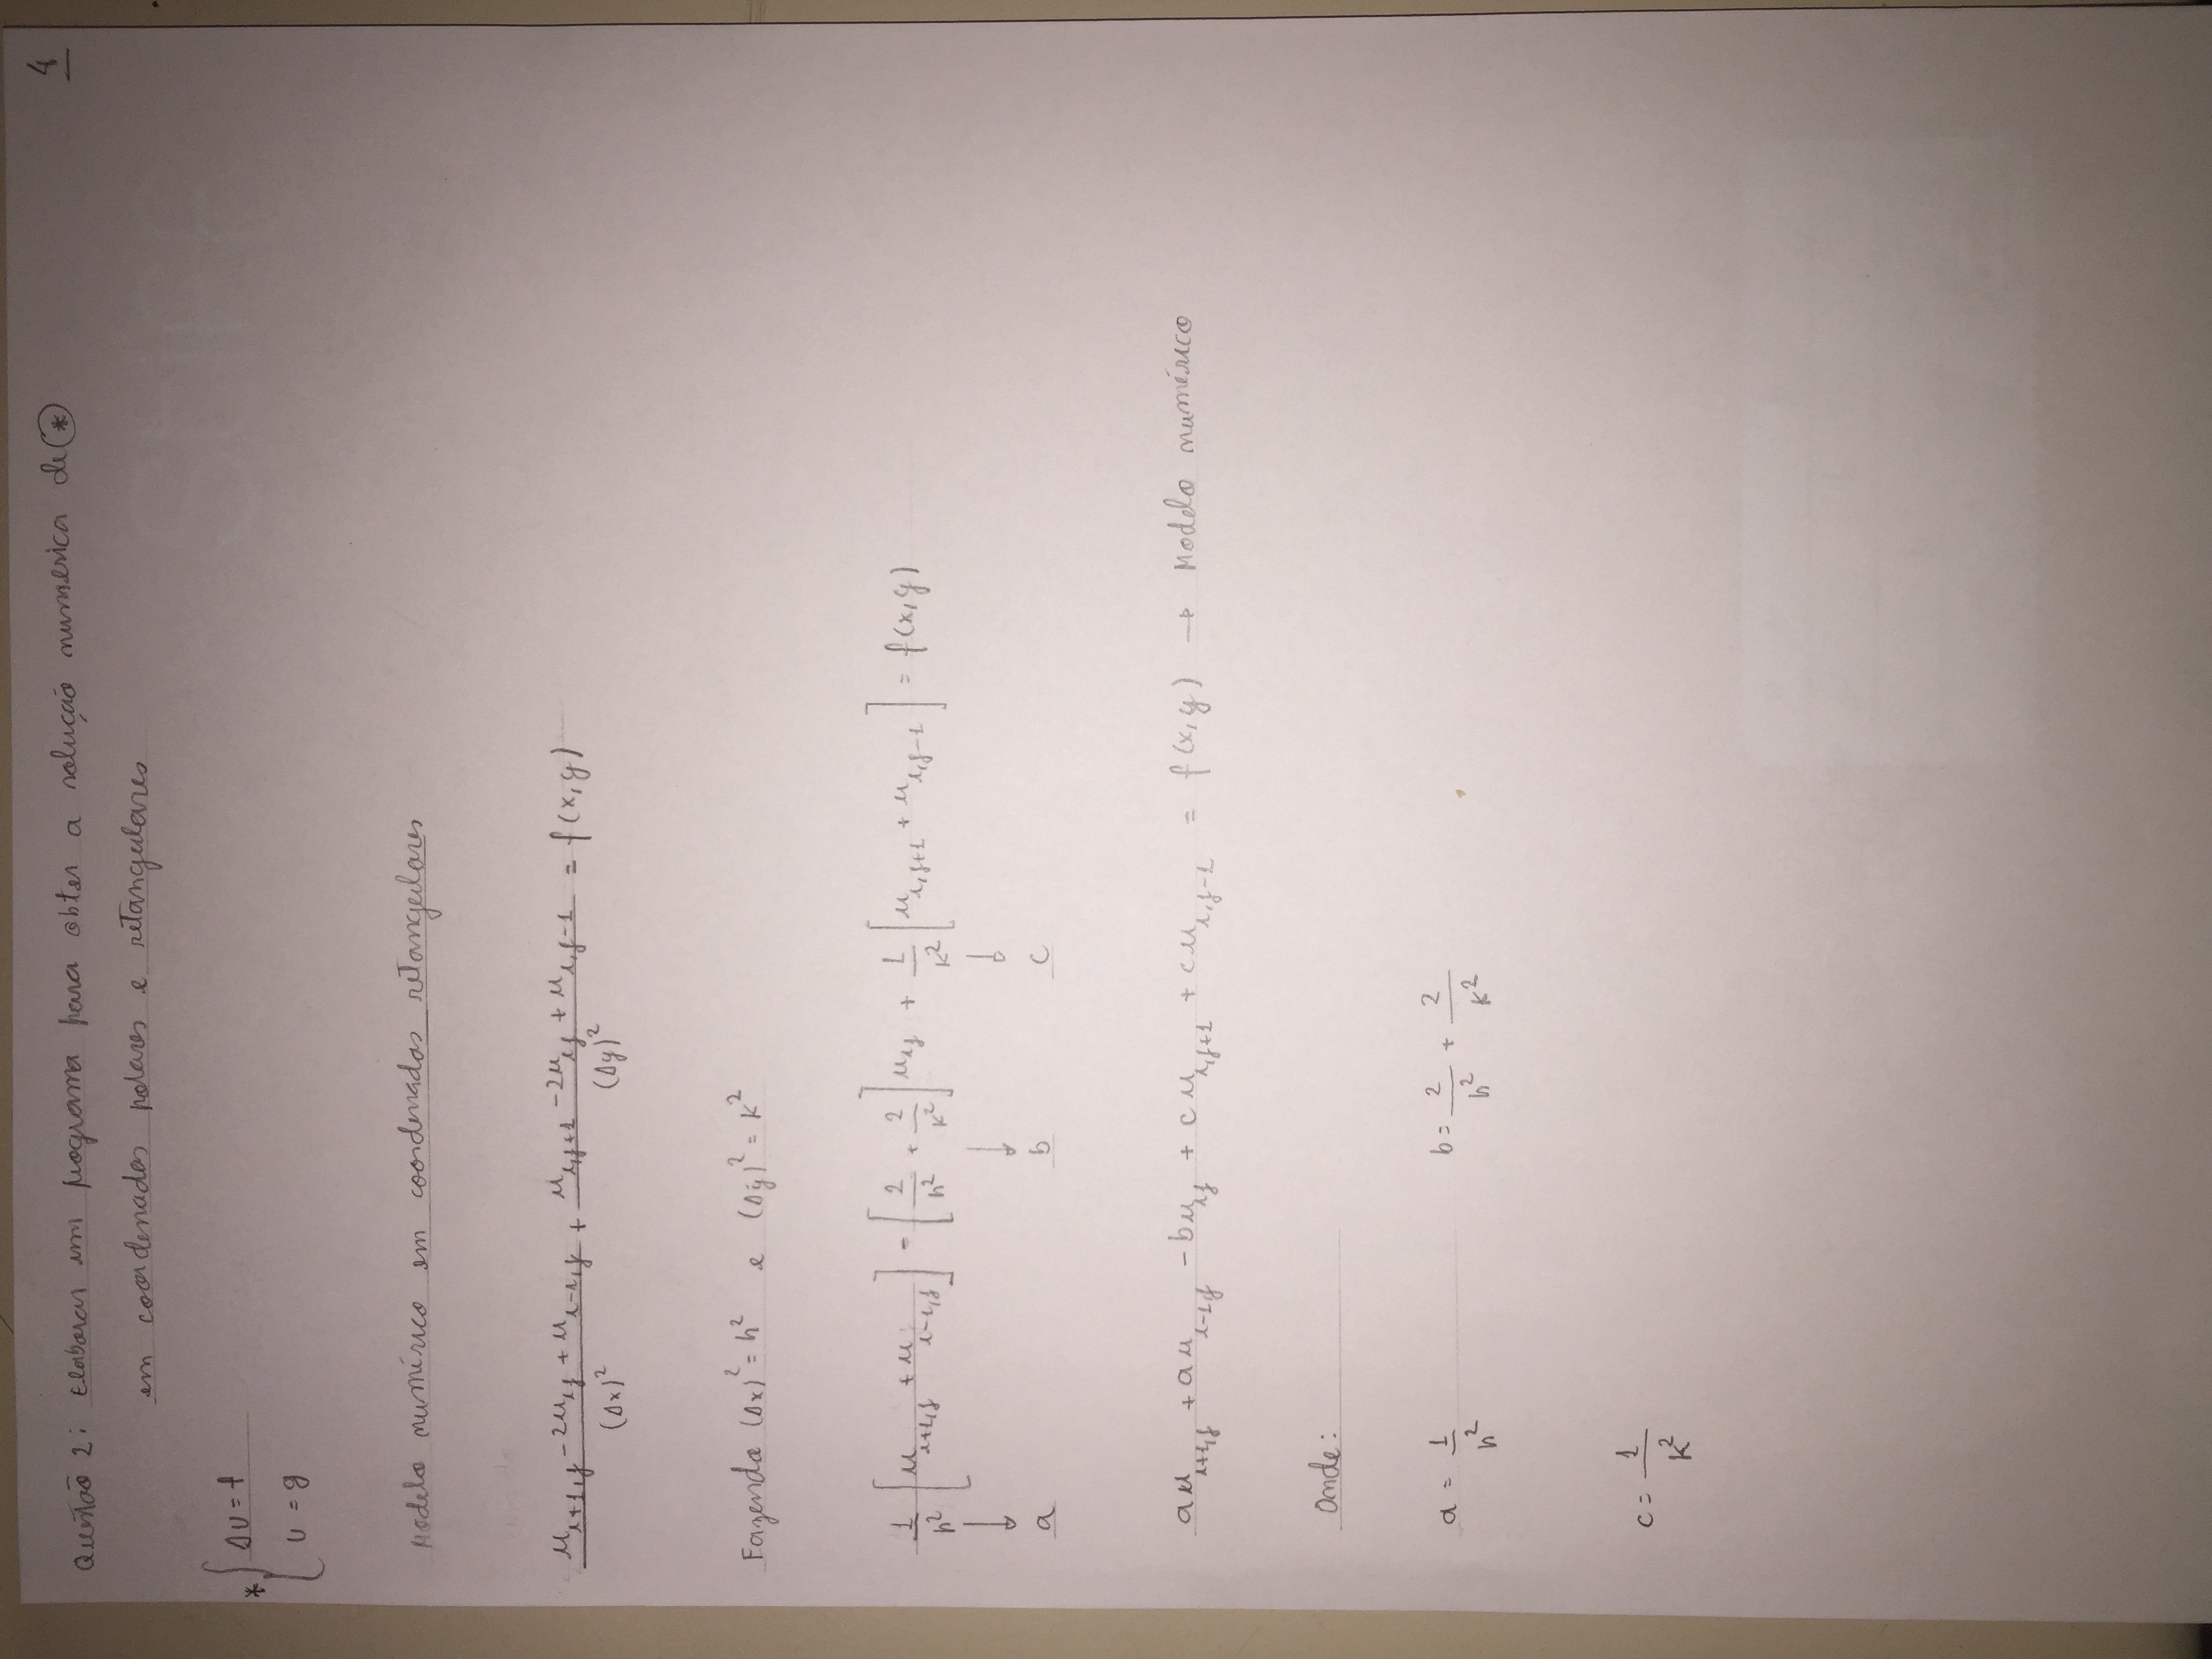 4
Questão 2: Elaborar um programa para obter a solução numérica de (*)
em coordenadas polares e retangulares
* { Δu = f
u = g
Modelo numérico em coordenadas retangulares
(u_{i+1,j} - 2u_{ij} + u_{i-1,j})/(Δx)² + (u_{i,j+1} - 2u_{ij} + u_{i,j-1})/(Δy)² = f(x,y)
Fazendo (Δx)² = h² e (Δy)² = k²
1/h² [u_{i+1,j} + u_{i-1,j}] - [2/h² + 2/k²] u_{ij} + 1/k² [u_{i,j+1} + u_{i,j-1}] = f(x,y)
↓ ↓ ↓
a b c
au_{i+1,j} + au_{i-1,j} - bu_{ij} + cu_{i,j+1} + cu_{i,j-1} = f(x,y) → Modelo numérico
Onde:
a = 1/h² b = 2/h² + 2/k²
c = 1/k²